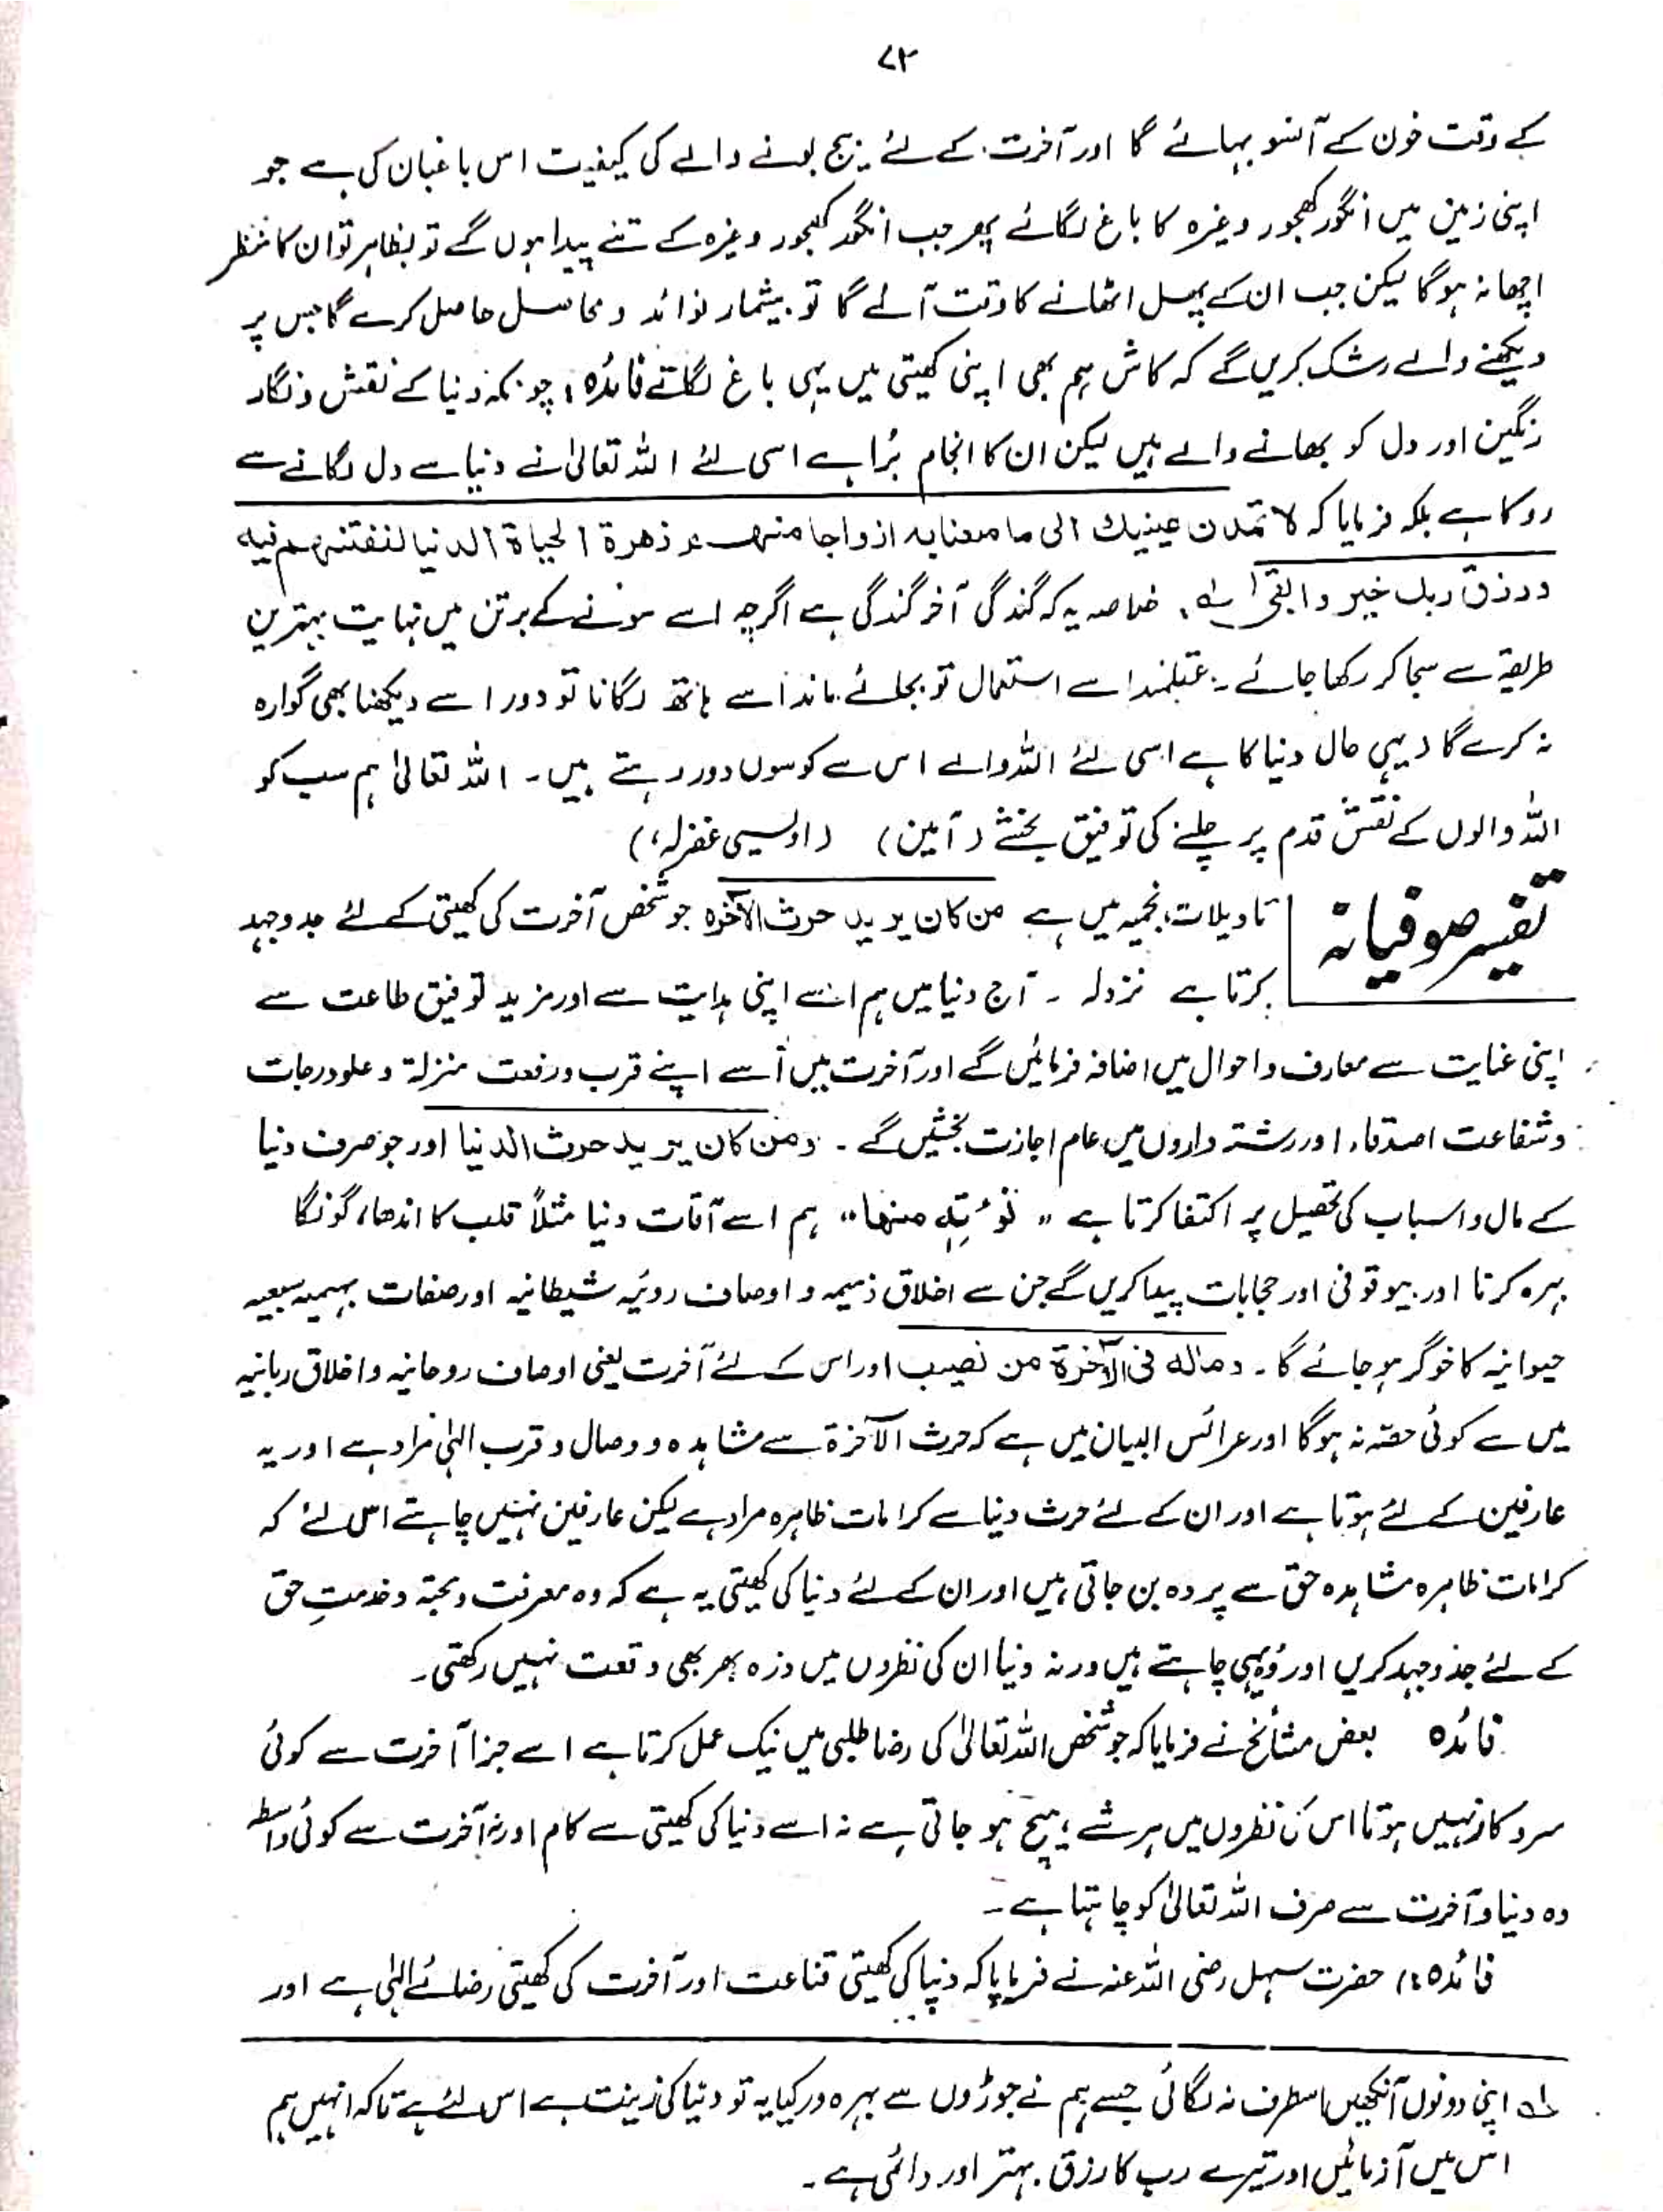 ۷۲
کے وقت خون کے آنسو بہائے گا اور آخرت کے لئے بیج بونے والے کی کیفیت اس باغبان کی ہے جو
اپنی زمین میں انگور کھجور وغیرہ کا باغ لگائے پھر جب انگور کھجور وغیرہ کے تنے پیدا ہوں گے تو بظاہر تو ان کا منظر
اچھا نہ ہوگا لیکن جب ان کے پھل اٹھانے کا وقت آئے گا تو بیشمار فوائد و محاصل حاصل کرے گا جس پر
دیکھنے والے رشک کریں گے کہ کاش ہم بھی اپنی کھیتی میں یہی باغ لگاتے فائدہ : چونکہ دنیا کے نقش و نگار
رنگین اور دل کو بھانے والے ہیں لیکن ان کا انجام بُرا ہے اسی لئے اللہ تعالیٰ نے دنیا سے دل لگانے سے
روکا ہے بلکہ فرمایا کہ لا تمدن عینیك الی ما متعنا بہ ازواجا منہم زھرة الحیاة الدنیا لنفتنہم فیہ
ورزق ربك خیر وابقی لہ ۔ خلاصہ یہ کہ گندگی آخر گندگی ہے اگرچہ اسے سونے کے برتن میں نہایت بہترین
طریقہ سے سجا کر رکھا جائے ۔ عقلمند اسے استعمال تو بجائے ماند اسے ہاتھ لگانا تو دور اسے دیکھنا بھی گوارہ
نہ کرے گا یہی حال دنیا کا ہے اسی لئے اللہ والے اس سے کوسوں دور رہتے ہیں ۔ اللہ تعالیٰ ہم سب کو
اللہ والوں کے نقش قدم پر چلنے کی توفیق بخشے (آمین) (اویسی غفرلہٗ)
تفسیر صوفیانہ
تاویلات نجمیہ میں ہے من کان یرید حرث الآخرہ جو شخص آخرت کی کھیتی کے لئے جدوجہد
کرتا ہے نزدلہ ۔ آج دنیا میں ہم اسے اپنی ہدایت سے اور مزید توفیق طاعت سے
اپنی عنایت سے معارف و احوال میں اضافہ فرمائیں گے اور آخرت میں اُسے اپنے قرب ورفعت منزلة و علو درجات
و شفاعت اصدقاء اور رشتہ داروں میں عام اجازت بخشیں گے ۔ ومن کان یرید حرث الدنیا اور جو صرف دنیا
کے مال و اسباب کی تحصیل پر اکتفا کرتا ہے " نؤتِہِ منھا " ہم اسے آفات دنیا مثلاً قلب کا اندھا، گونگا
بہرہ کرنا اور بیوقوفی اور حجابات پیدا کریں گے جن سے اخلاق ذمیمہ و اوصاف ردئیہ شیطانیہ اور صفات بہیمیہ سبعیہ
حیوانیہ کا خوگر ہو جائے گا ۔ ومالہ فی الآخرة من نصیب اور اس کے لئے آخرت یعنی اوصاف روحانیہ و اخلاق ربانیہ
میں سے کوئی حصّہ نہ ہوگا اور عرائس البیان میں ہے کہ حرث الآخرة سے مشاہدہ و وصال و قرب الہٰی مراد ہے اور یہ
عارفین کے لئے ہوتا ہے اور ان کے لئے حرث دنیا سے کرامات ظاہرہ مراد ہے لیکن عارفین نہیں چاہتے اس لئے کہ
کرامات ظاہرہ مشاہدہ حق سے پردہ بن جاتی ہیں اور ان کے لئے دنیا کی کھیتی یہ ہے کہ وہ معرفت و محبة و خدمتِ حق
کے لئے جدوجہد کریں اور وہ یہی چاہتے ہیں ورنہ دنیا ان کی نظروں میں ذرہ بھر بھی وقعت نہیں رکھتی ۔
فائدہ بعض مشائخ نے فرمایا کہ جو شخص اللہ تعالیٰ کی رضا طلبی میں نیک عمل کرتا ہے اسے جزا آخرت سے کوئی
سروکار نہیں ہوتا اس کی نظروں میں ہر شے ہیچ ہو جاتی ہے نہ اسے دنیا کی کھیتی سے کام اور نہ آخرت سے کوئی واسطہ
وہ دنیا و آخرت سے صرف اللہ تعالیٰ کو چاہتا ہے ۔
فائدہ : حضرت سہل رضی اللہ عنہ نے فرمایا کہ دنیا کی کھیتی قناعت اور آخرت کی کھیتی رضائے الہٰی ہے اور
لہ اپنی دونوں آنکھیں اسطرف نہ لگائی جسے ہم نے جوڑوں سے بہرہ ور کیا یہ تو دنیا کی زینت ہے اس لئے ہے تاکہ انہیں ہم
اس میں آزمائیں اور تیرے رب کا رزق بہتر اور دائمی ہے ۔